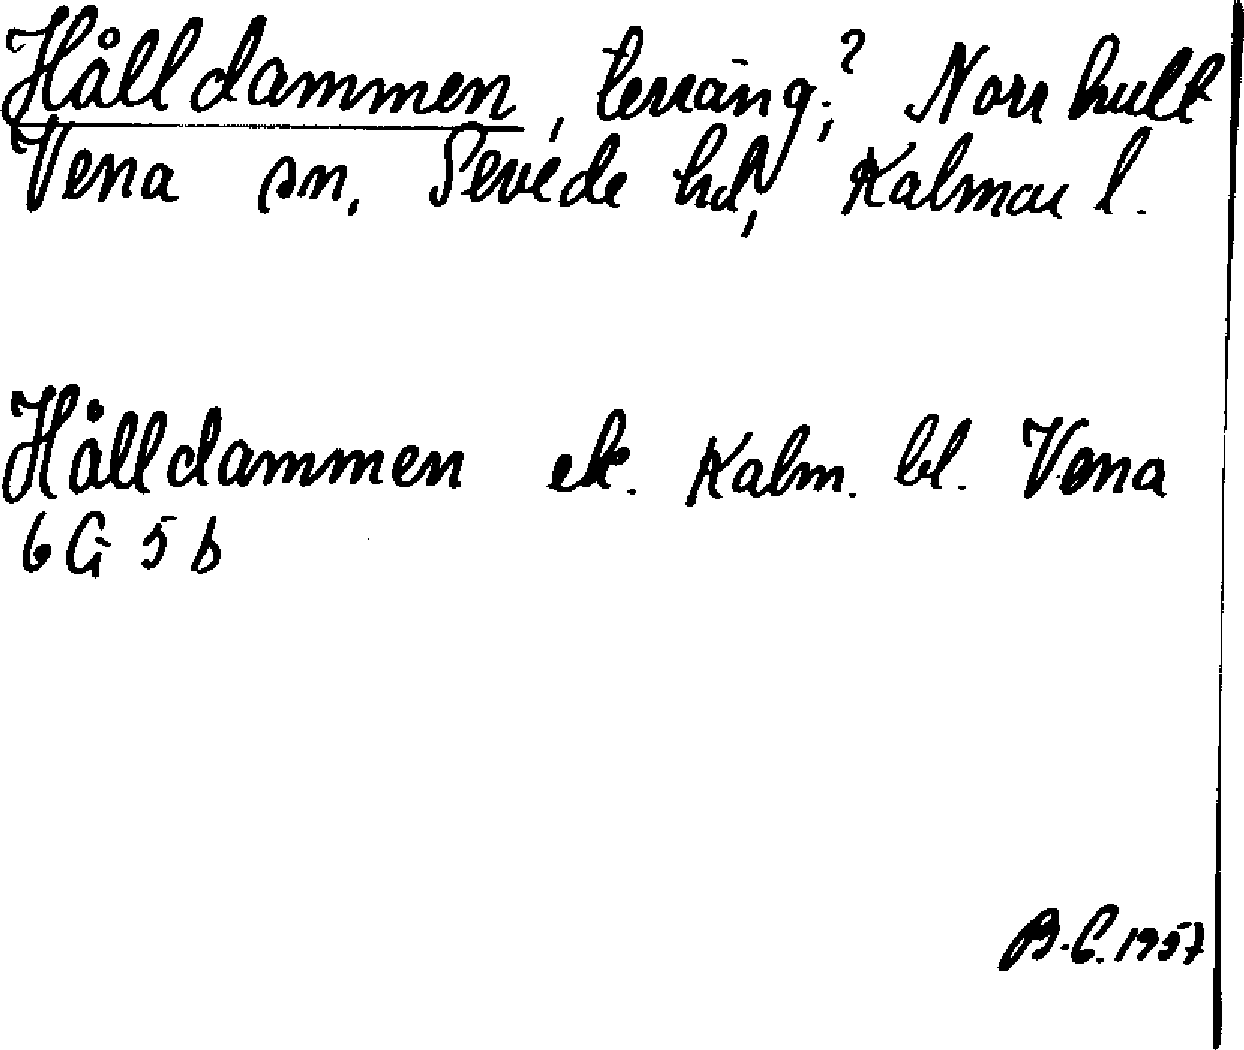 Hålldammen, terräng,? Norrhult
Vena sn, Sevede hd, Kalmar l.
Hålldammen ek. Kalm. bl. Vena
6 G 5 b
B-C. 1957